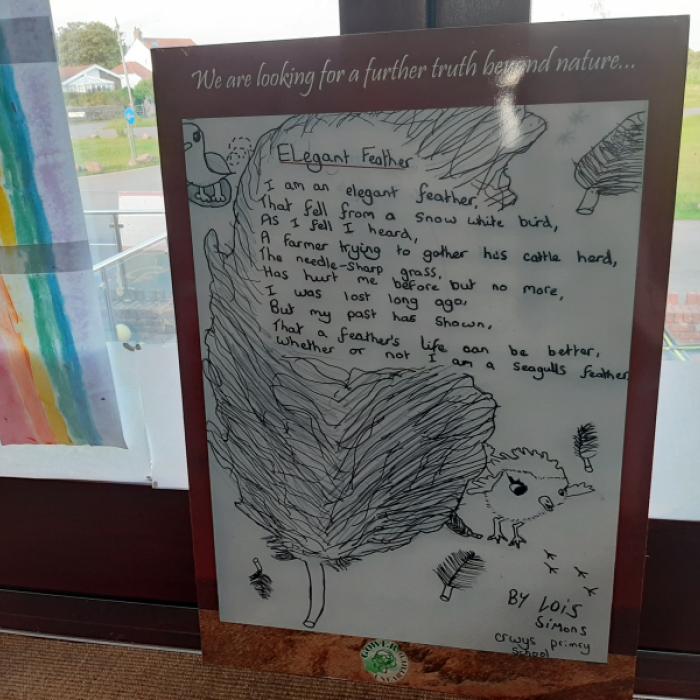 We are looking for a further truth beyond nature...
Elegant Feather
I am an elegant feather,
That fell from a snow white bird,
As I fell I heard,
A farmer trying to gother his cattle herd,
The needle-sharp grass,
Has hurt me before but no more,
I was lost long ago,
But my past has shown,
That a feather's life can be better,
Whether or not I am a seagulls feather
By Lois
Simons
crwys primry
School
GOWER